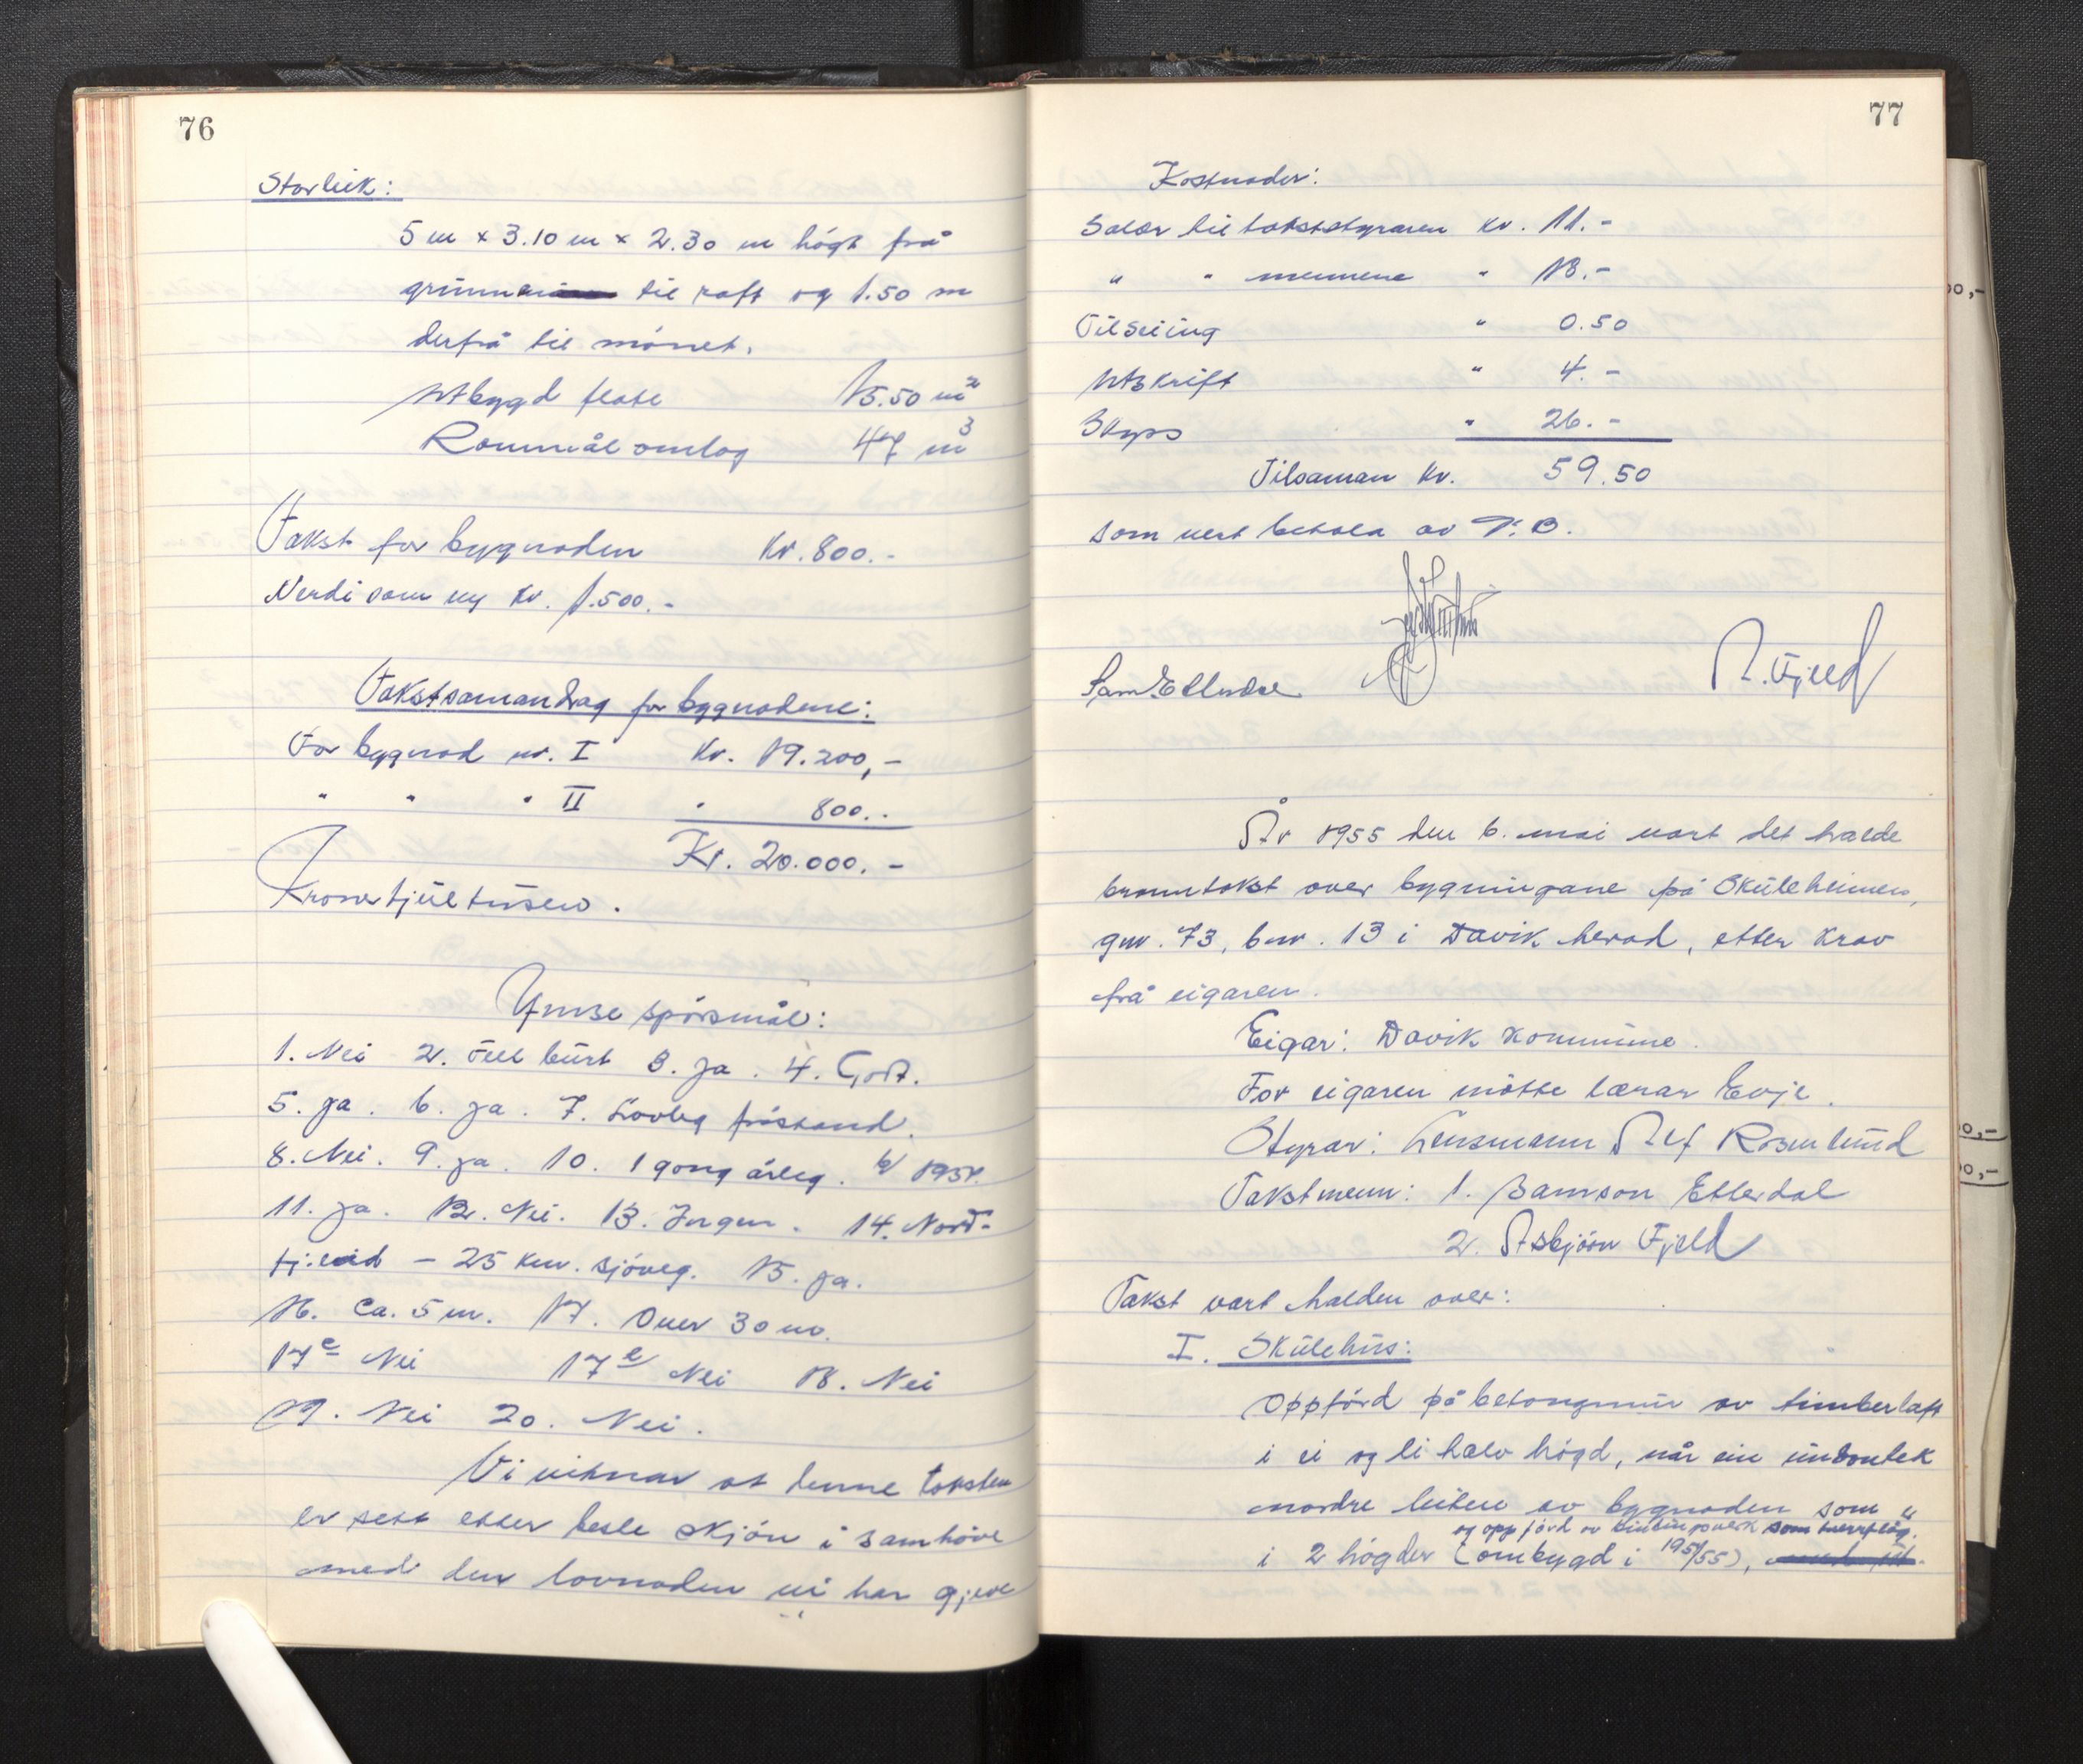 76
Storleik:
5 m x 3.10 m x 2.30 m högt frå
til raft og 1.50 m
derfrå til mönet.
Utbygd flate 15.50 m²
Rommål omlag 47 m³
Takst for bygnaden kr. 800.-
Verdi som ny kr. 1.500.-
Takstsamandrag for bygnadene:
For bygnad nr. I kr. 19.200,-
" " " II " 800..
Kr. 20.000.-
Kroner tjuetusen.
Ymse spörsmål:
1. Nei 2. Till burt 3. Ja. 4. Godt.
5. Ja. 6. Ja. 7. Lovleg tilstand.
8. Nei. 9. Ja. 10. 1 gong årleg.
11. Ja. 12. Nei. 13. Ingen. 14. Nord-
fj.eid - 25 km. sjöveg. 15. Ja.
16. Ca. 5 m. 17. Over 30 m.
17c Nei 17e Nei 18. Nei
19. Nei 20. Nei.
Vi vitnar at denne taksten
er sett etter beste skjön i samhöve
med den lovnaden vi har gjeve
77
Kostnader:
Salær til takststyraren kr. 11.-
" " mennene " 18.-
Tilseiing " 0.50
Utskrift " 4.-
Skyss " 26.-
Tilsaman kr. 59.50
som vert betala av
Sam. Ellerdal A. Fjeld
År 1955 den 6. mai vart det halde
branntakst over bygningane på Skuleheimen,
gnr. 73, bnr. 13 i Davik herad, etter krav
frå eigaren.
Eigar: Davik kommune.
For eigaren mötte lærar Evje.
Styrar: Lensmann Alf Rosenlund
Takstmenn: 1. Samson Ellerdal
2. Asbjörn Fjeld
Takst vart halden over:
I. Skulehus:
Oppförd på betongmur av timberlaft
i ei og ei halv högd, når ein undantek
nordre luten av bygnaden som
og oppförd av bindingsverk som
i 2 högder (ombygd i 1954/55),